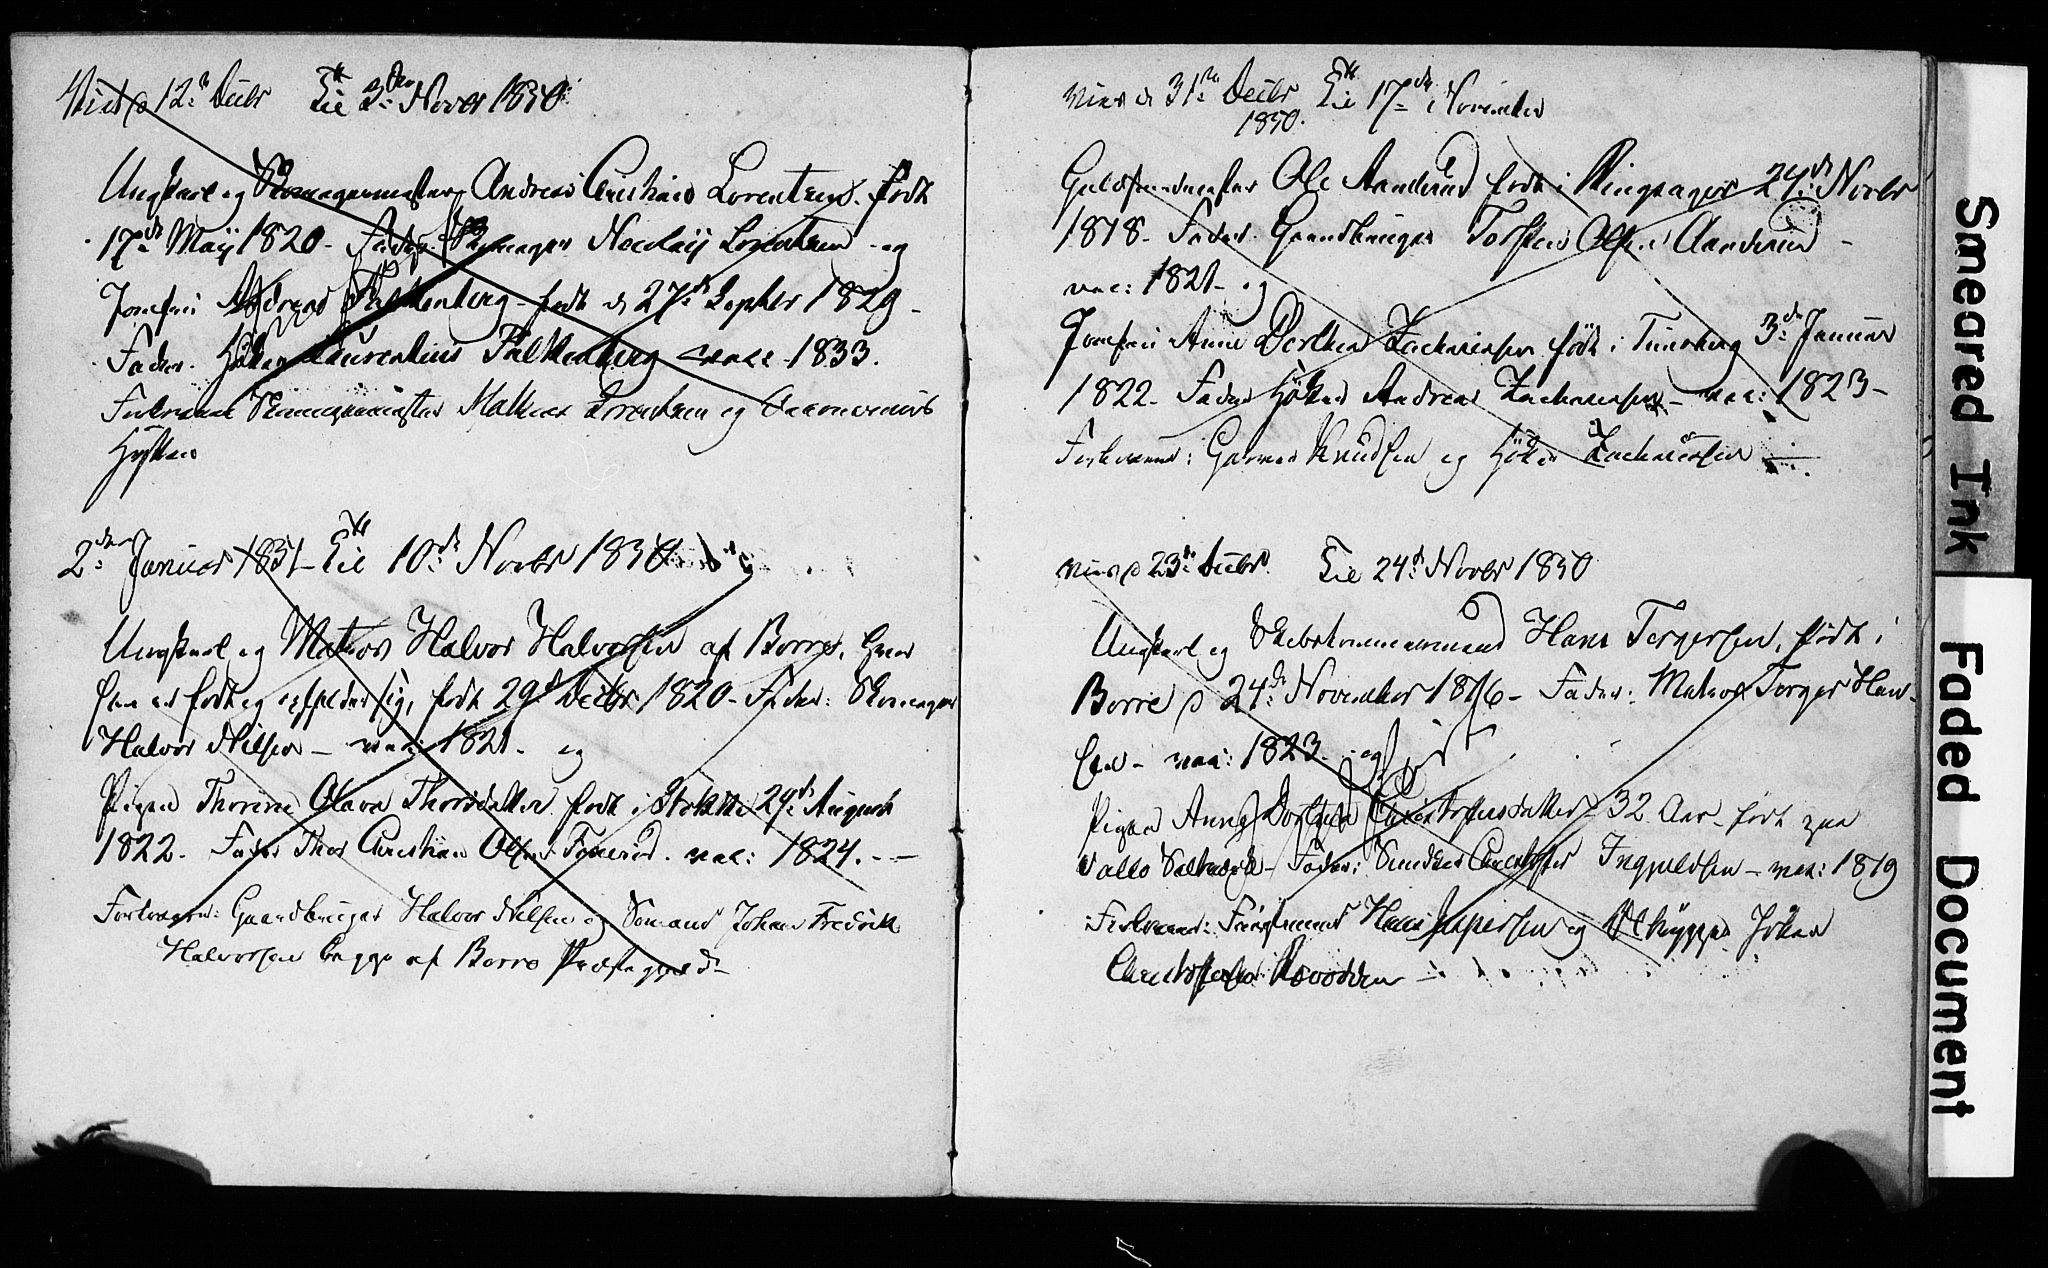 Viet d 12te Decbr Til 3die Novbr 1850
Ungkarl og Skomagermester Andreas Christian Lorentzen. født
17de May 1820 - Fader: Skomager Nicolay Lorentzen - og
Jomfru Andrea Falkenberg - født d 27de Septbr 1829 -
Fader. Høker Laurentius Falkenberg - vacc - 1833.
Forlovere Skomagermester Mathias Lorentzen og
2den Januar 1851 - Til 10de Novbr 1850
Ungkarl og Matros Halvor Halvorsen af Borre, hvor
han er født og opholder sig, født 29de Decbr 1820 - Fader: Skomager
Halvor Nilsen - vac: 1821 - og
Pigen Thorine Olava Thorsdatter født i Stokke 29de August
1822 - Fader Thor Christian Olsen vac: 1824. - -
Forlovere: Gaardbruger Halvor Nilsen og Sømand Johan Fredrik
Halvorsen begge af Borre Præstegjeld -
Viet d 31te Decbr 1850. Til 17de November
Guldsmedmester Ole Aanderud født i Ringsager 24de Novbr
1818 - Fader Gaardbruger Torsten Olsen Aanderud -
vac: 1821 - og
Jomfru Anne Dorthea Zachariasen født i Tunsberg 3de Januar
1822 - Fader Høker Andreas Zachariasen - vac: 1823 -
Forlovere: Garver Knudsen og Høker Zachariasen -
Viet d 23de Decbr. Til 24de Novbr 1850
Ungkarl og Skibstømmermand Hans Tergersen, født i
Borre d 24de November 1816 - Fader: Matros Terger Han-
sen - vac: 1823 - og
Pigen Anne Dorthea Christophersdatter 32 Aar - født paa
Vallø Saltværk - Fader: Christopher Ingvaldsen - vac: 1819
Forlovere: Hans Jespersen og
Christopher
Smeared Ink
Faded Document